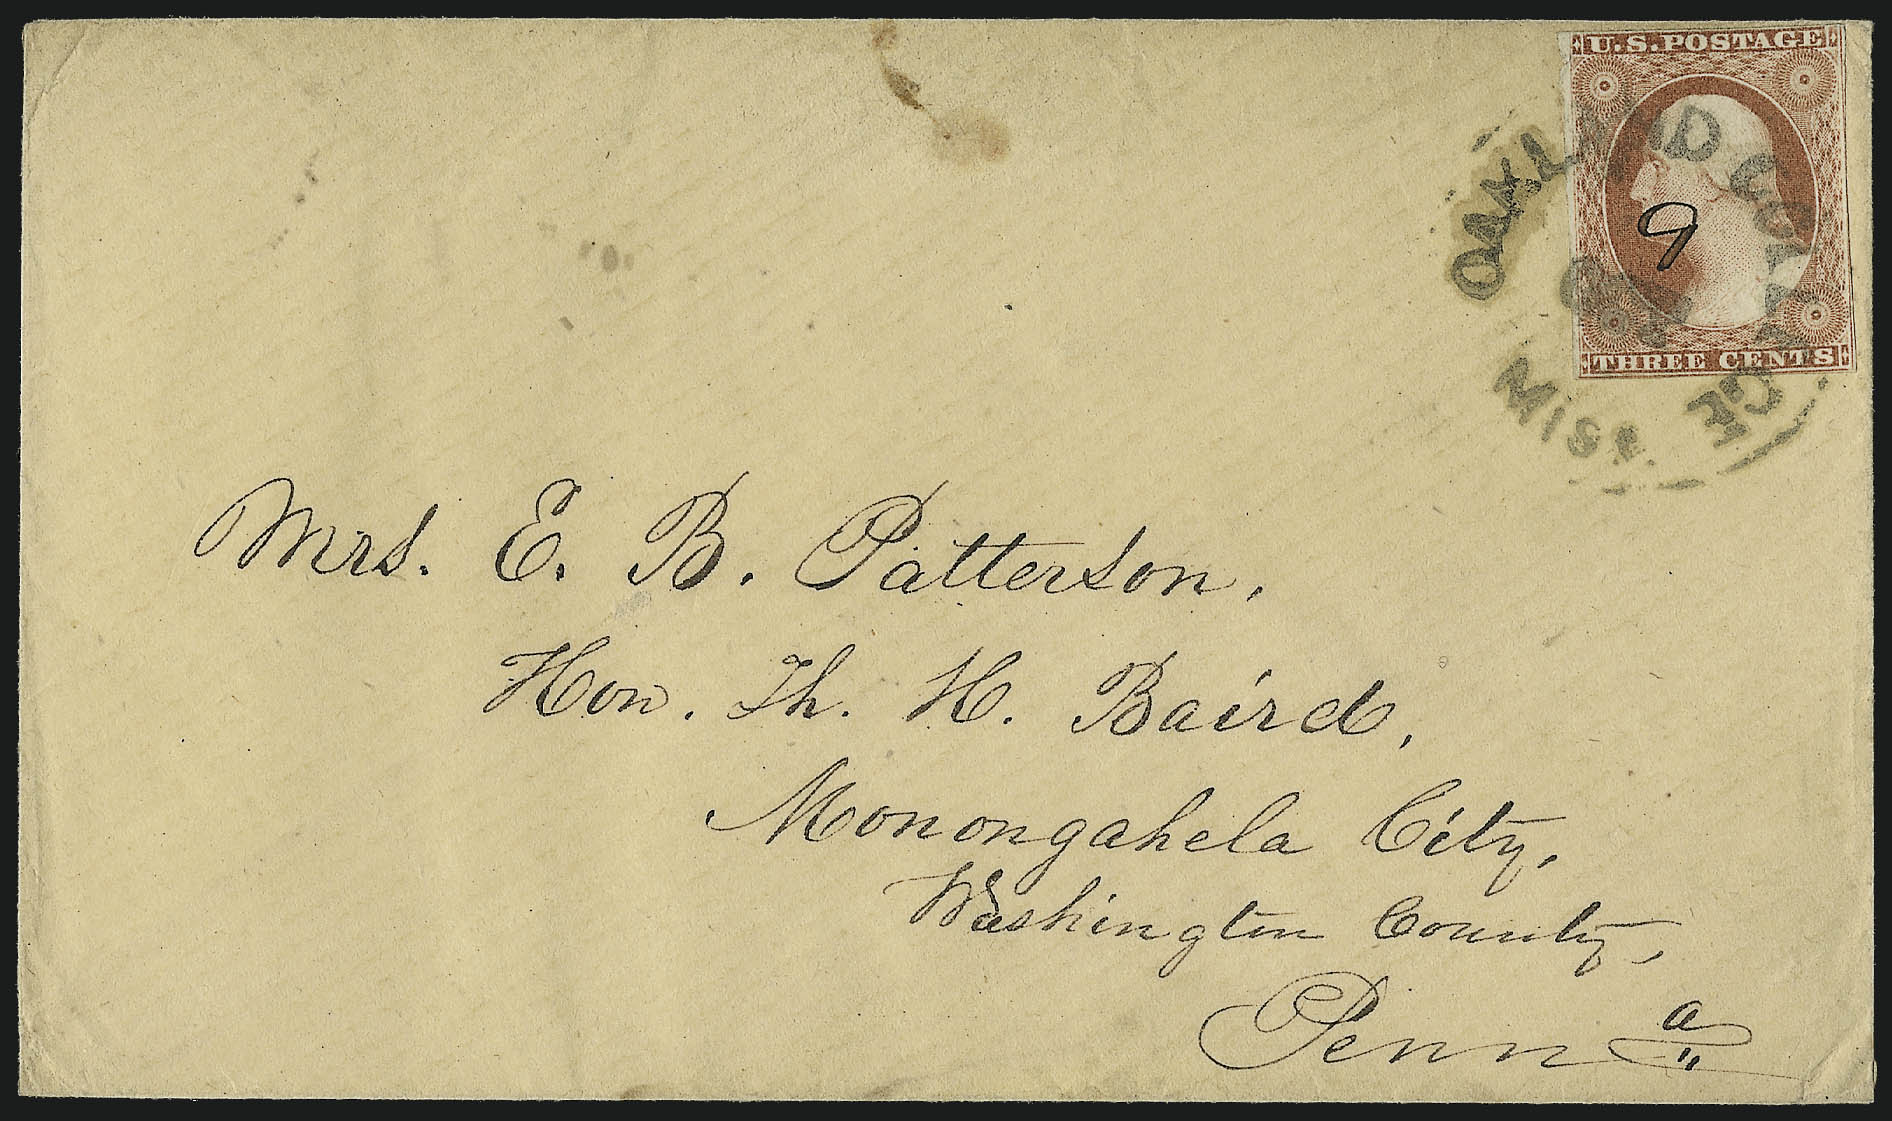 U.S. POSTAGE
OAKLAND COLLEGE
9
MISS.
THREE CENTS
Mrs. E. B. Patterson,
Hon. Th. H. Baird,
Monongahela City,
Washington County,
Penna